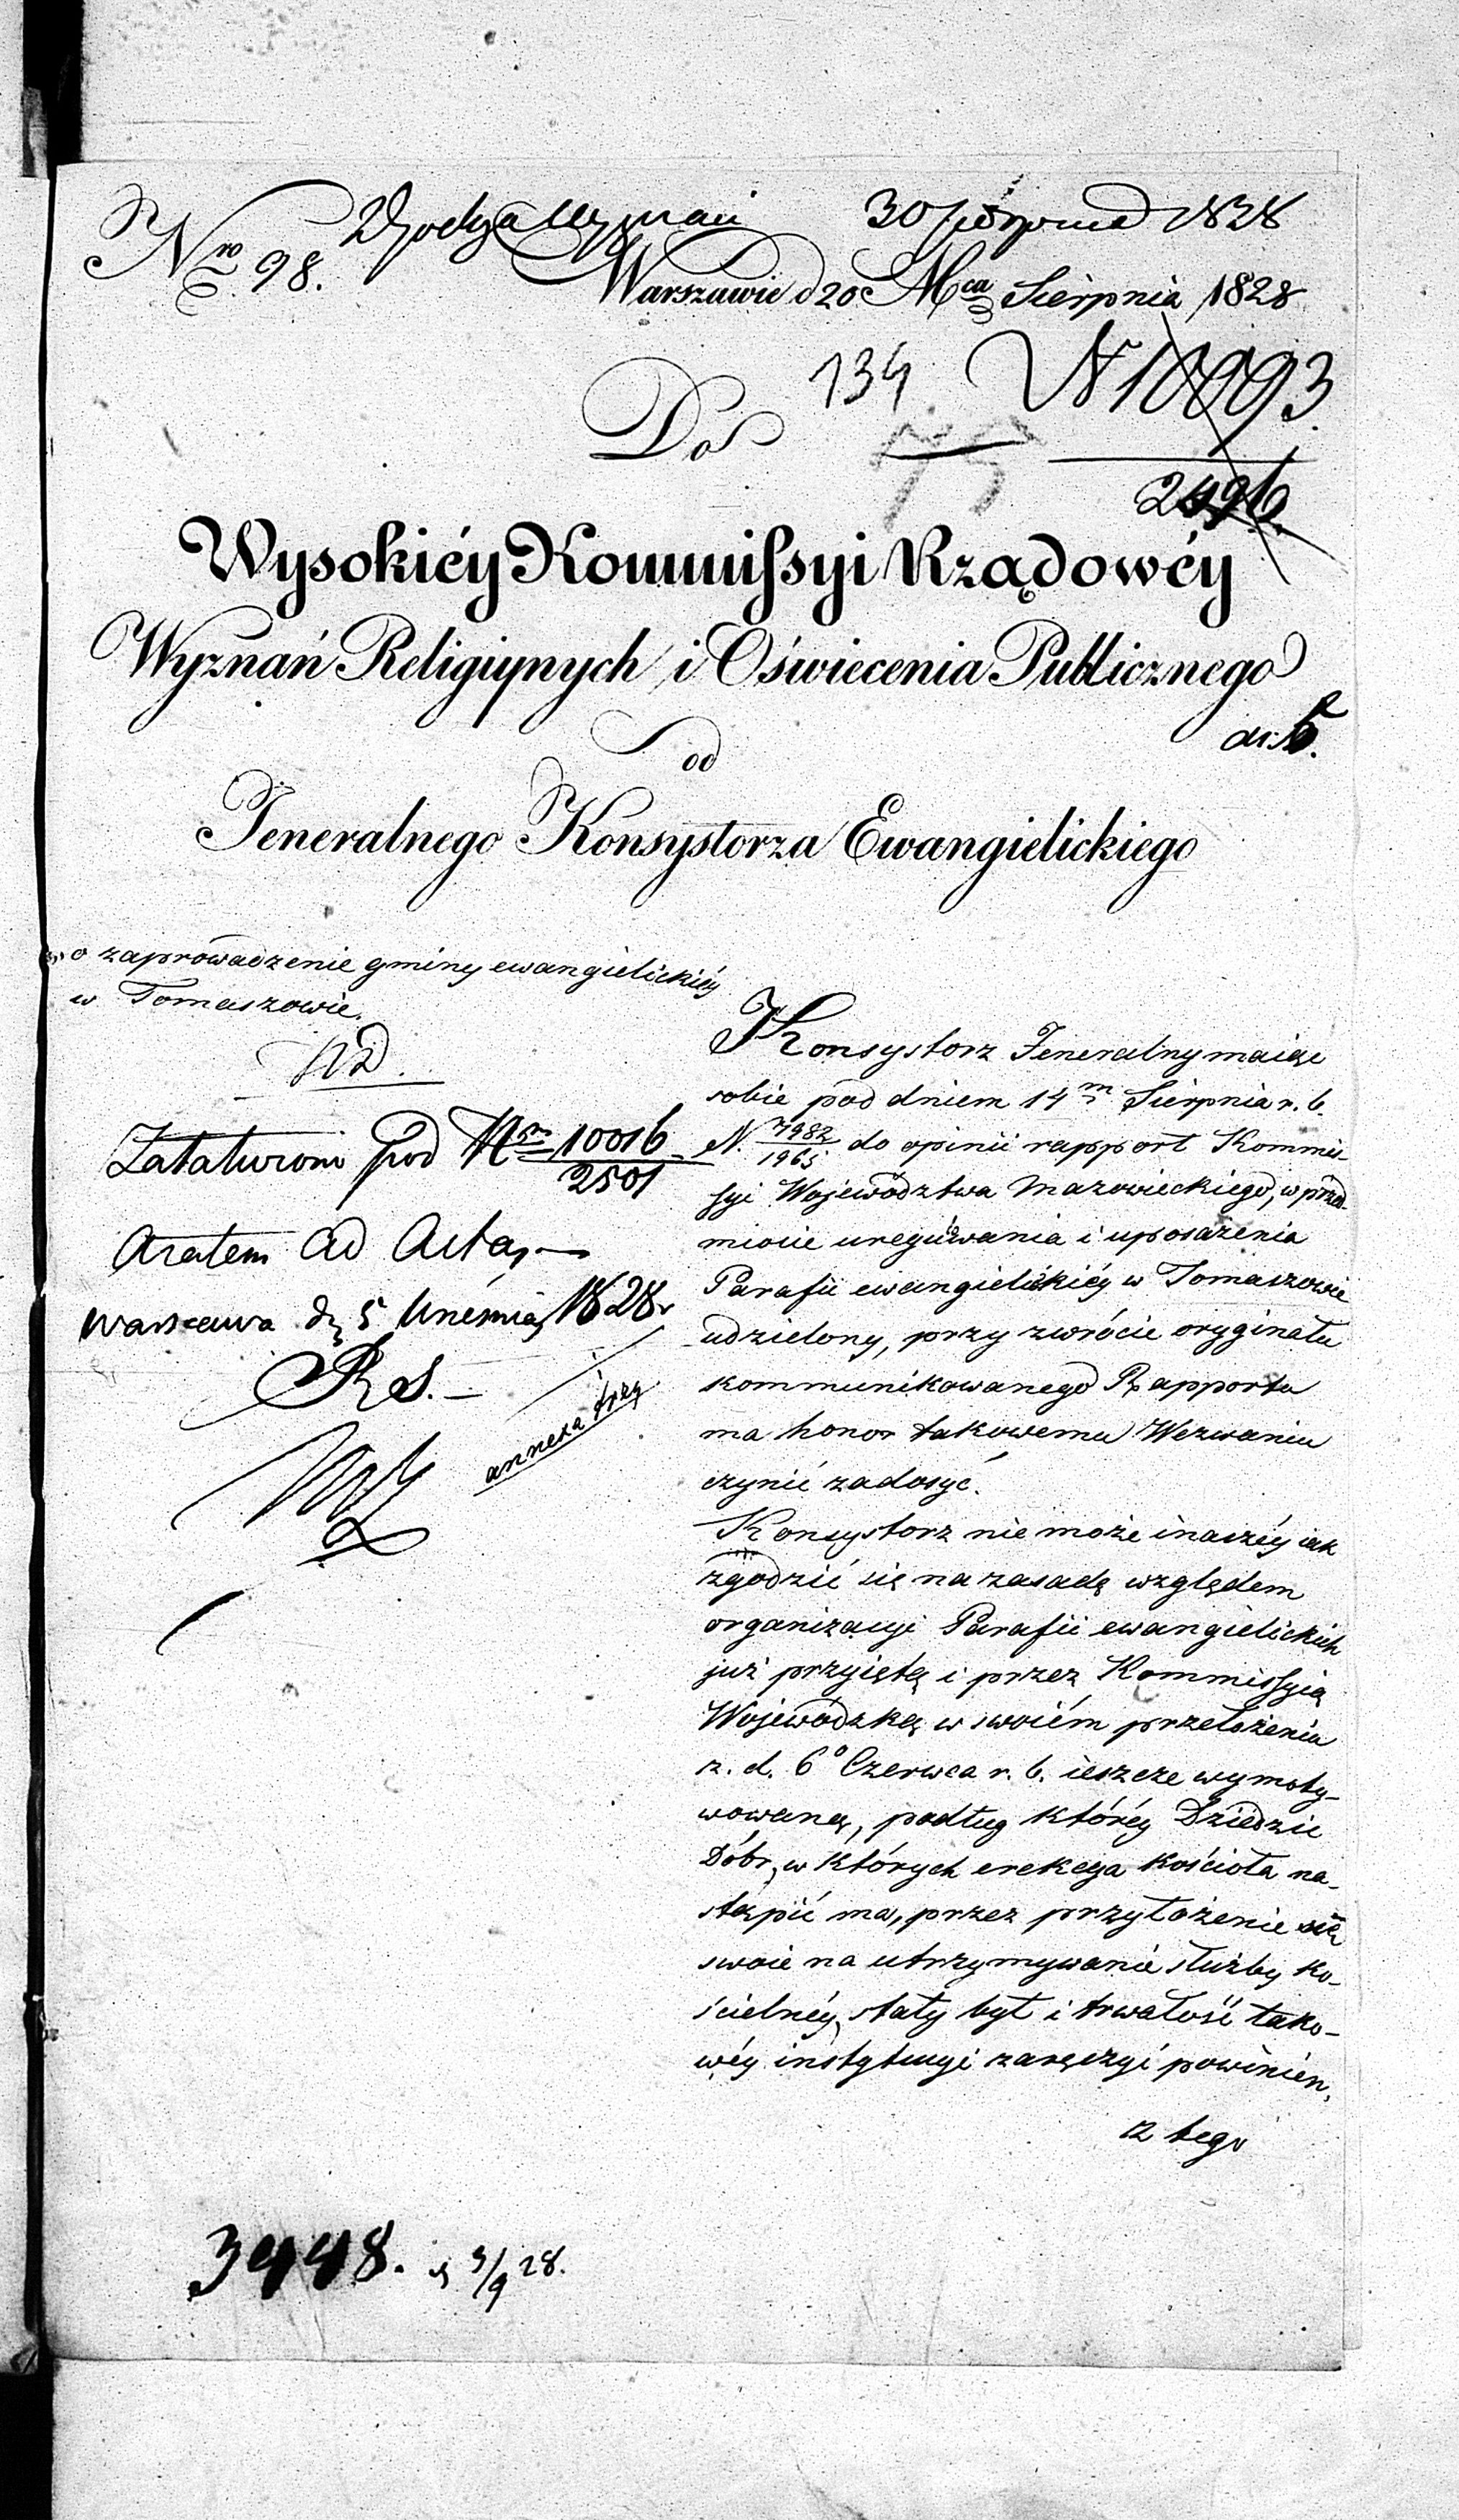 Nro 98. Wydz. Wyznań 30 Sierpnia 1828
Warszawie d 20 Mca Sierpnia 1828
134 N 10093
Do
2496
Wysokiéy Kommissyi Rządowéy
Wyznań Religiynych i Oświecenia Publicznego
od
Jeneralnego Konsystorza Ewangielickiego
o zaprowadzenie gminy ewangielickiéy
w Tomaszowie.
Załatwiono pod Nrm 10016
2501
zatem ad Acta,
Warszawa d 5 Wrześnią 1828 r
annexa trzy
Konsystorz Jeneralny maiąc
sobie pod dniem 14m Sierpnia r. b.
N. 7982/1965 do opinii rapport Kommis-
syi Województwa Mazowieckiego, w przed-
miocie uregulowania i uposażenia
Parafii ewangielickiéy w Tomaszowie
udzielony, przy zwrócie oryginału
kommunikowanego Rapportu
ma honor takowemu Wezwaniu
czynić zadosyć.
Konsystorz nie może inaczéy iak
zgodzić się na zasadę względem
organizacyi Parafii ewangielickich
już przyiętą i przez Kommissyią
Wojewódzką w swoiém przełożeniu
z. d. 6° Czerwca r. b. ieszcze wymoty-
wowaną, podług któréy Dziedzic
Dóbr, w których erekcya kościoła na-
stąpić ma, przez przyłożenie się
swoie na utrzymywanie służby ko-
ścielnéy, stały byt i trwałość tako-
wéy instytucyi zaręczyć powinien,
z tego
3448. d 3/9 28.